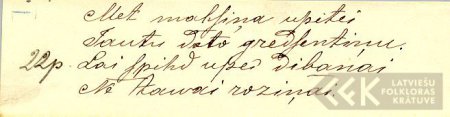 Met mahsiņa upitei
Tautu dotō gredsentiņu.
22p. Lai spihd upes dibanai
Ne tawai roziņai.
LATVIEŠU
FOLKLORAS
KRĀTUVE